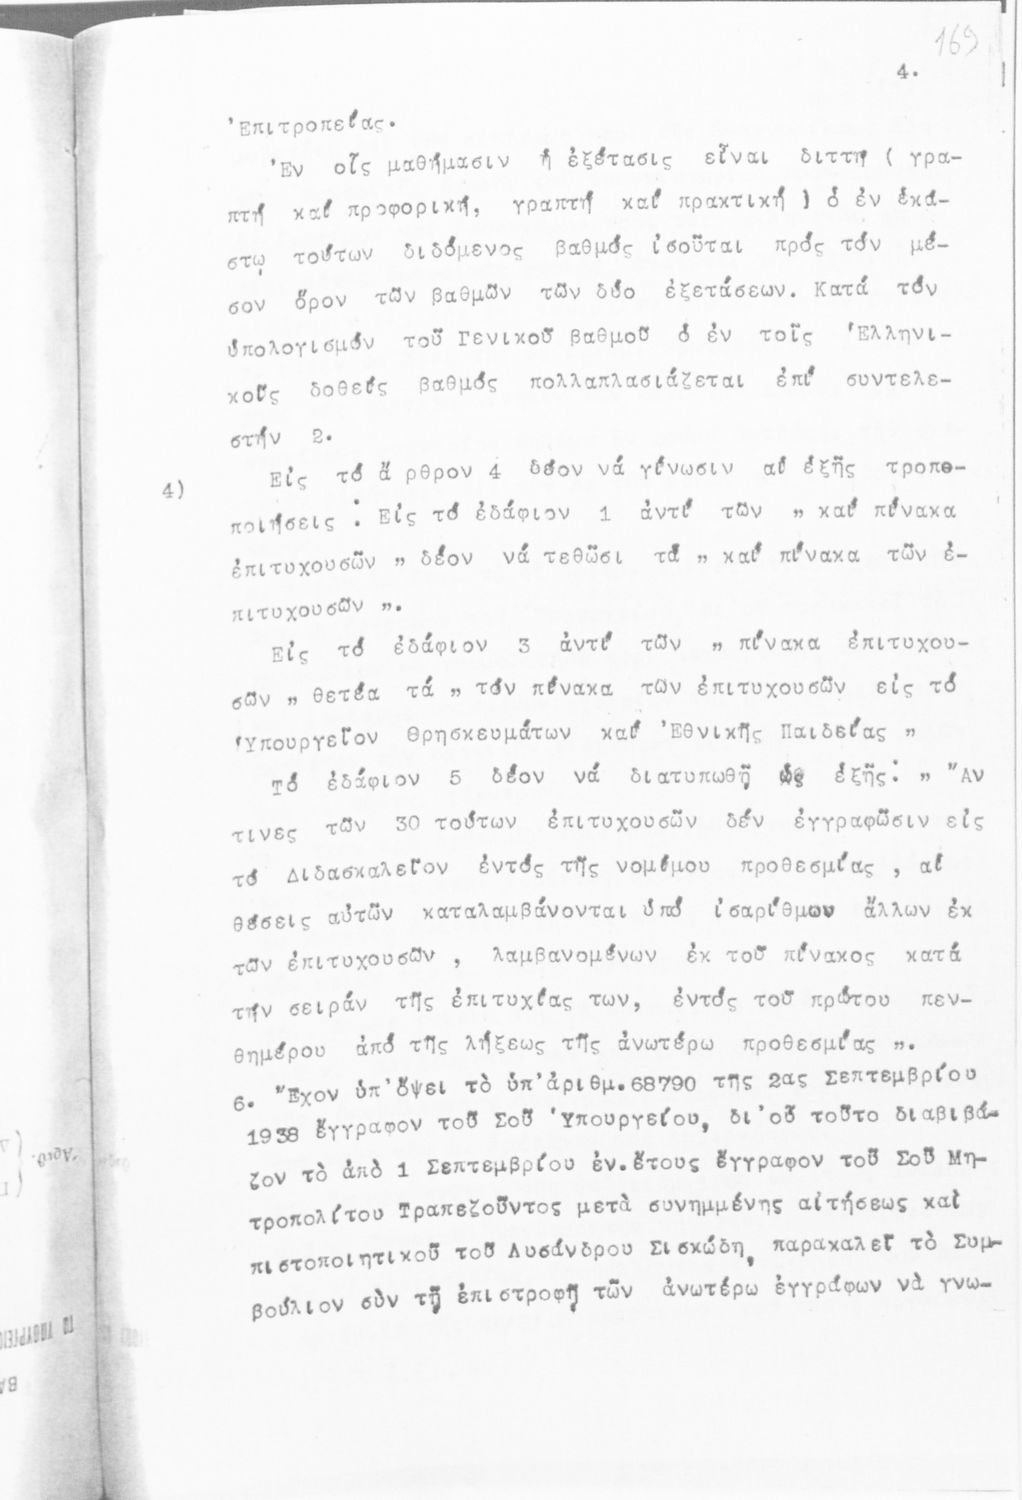 169
4.
Ἐπιτροπείας.
Ἐν οἷς μαθήμασιν ἡ ἐξέτασις εἶναι διττή ( γρα-
πτή καί προφορική, γραπτή καί πρακτική ) ὁ ἐν ἑκά-
στῳ τούτων διδόμενος βαθμός ἰσοῦται πρός τόν μέ-
σον ὅρον τῶν βαθμῶν τῶν δύο ἐξετάσεων. Κατά τόν
ὑπολογισμόν τοῦ Γενικοῦ βαθμοῦ ὁ ἐν τοῖς Ἑλληνι-
κοῖς δοθείς βαθμός πολλαπλασιάζεται ἐπί συντελε-
στήν 2.
4) Εἰς τό ἄ ρθρον 4 δέον νά γίνωσιν αἱ ἑξῆς τροπο-
ποιήσεις : Εἰς τό ἐδάφιον 1 ἀντί τῶν „ καί πίνακα
ἐπιτυχουσῶν „ δέον νά τεθῶσι τά „ καί πίνακα τῶν ἐ-
πιτυχουσῶν „.
Εἰς τό ἐδάφιον 3 ἀντί τῶν „ πίνακα ἐπιτυχου-
σῶν „ θετέα τά „ τόν πίνακα τῶν ἐπιτυχουσῶν εἰς τό
Ὑπουργεῖον Θρησκευμάτων καί Ἐθνικῆς Παιδείας „
Τό ἐδάφιον 5 δέον νά διατυπωθῇ ὡς ἑξῆς: „ Ἄν
τινες τῶν 30 τούτων ἐπιτυχουσῶν δέν ἐγγραφῶσιν εἰς
τό Διδασκαλεῖον ἐντός τῆς νομίμου προθεσμίας , αἱ
θέσεις αὐτῶν καταλαμβάνονται ὑπό ἰσαρίθμων ἄλλων ἐκ
τῶν ἐπιτυχουσῶν , λαμβανομένων ἐκ τοῦ πίνακος κατά
τήν σειράν τῆς ἐπιτυχίας των, ἐντός τοῦ πρώτου πεν-
θημέρου ἀπό τῆς λήξεως τῆς ἀνωτέρω προθεσμίας „.
6. Ἔχον ὑπ'ὄψει τὸ ὑπ'ἀριθμ.68790 τῆς 2ας Σεπτεμβρίου
1938 ἔγγραφον τοῦ Σοῦ Ὑπουργείου, δι'οὗ τοῦτο διαβιβά-
ζον τὸ ἀπὸ 1 Σεπτεμβρίου ἐν.ἔτους ἔγγραφον τοῦ Σοῦ Μη-
τροπολίτου Τραπεζοῦντος μετὰ συνημμένης αἰτήσεως καὶ
πιστοποιητικοῦ τοῦ Λυσάνδρου Σισκώδη, παρακαλεῖ τὸ Συμ-
βούλιον σὺν τῇ ἐπιστροφῇ τῶν ἀνωτέρω ἐγγράφων νὰ γνω-